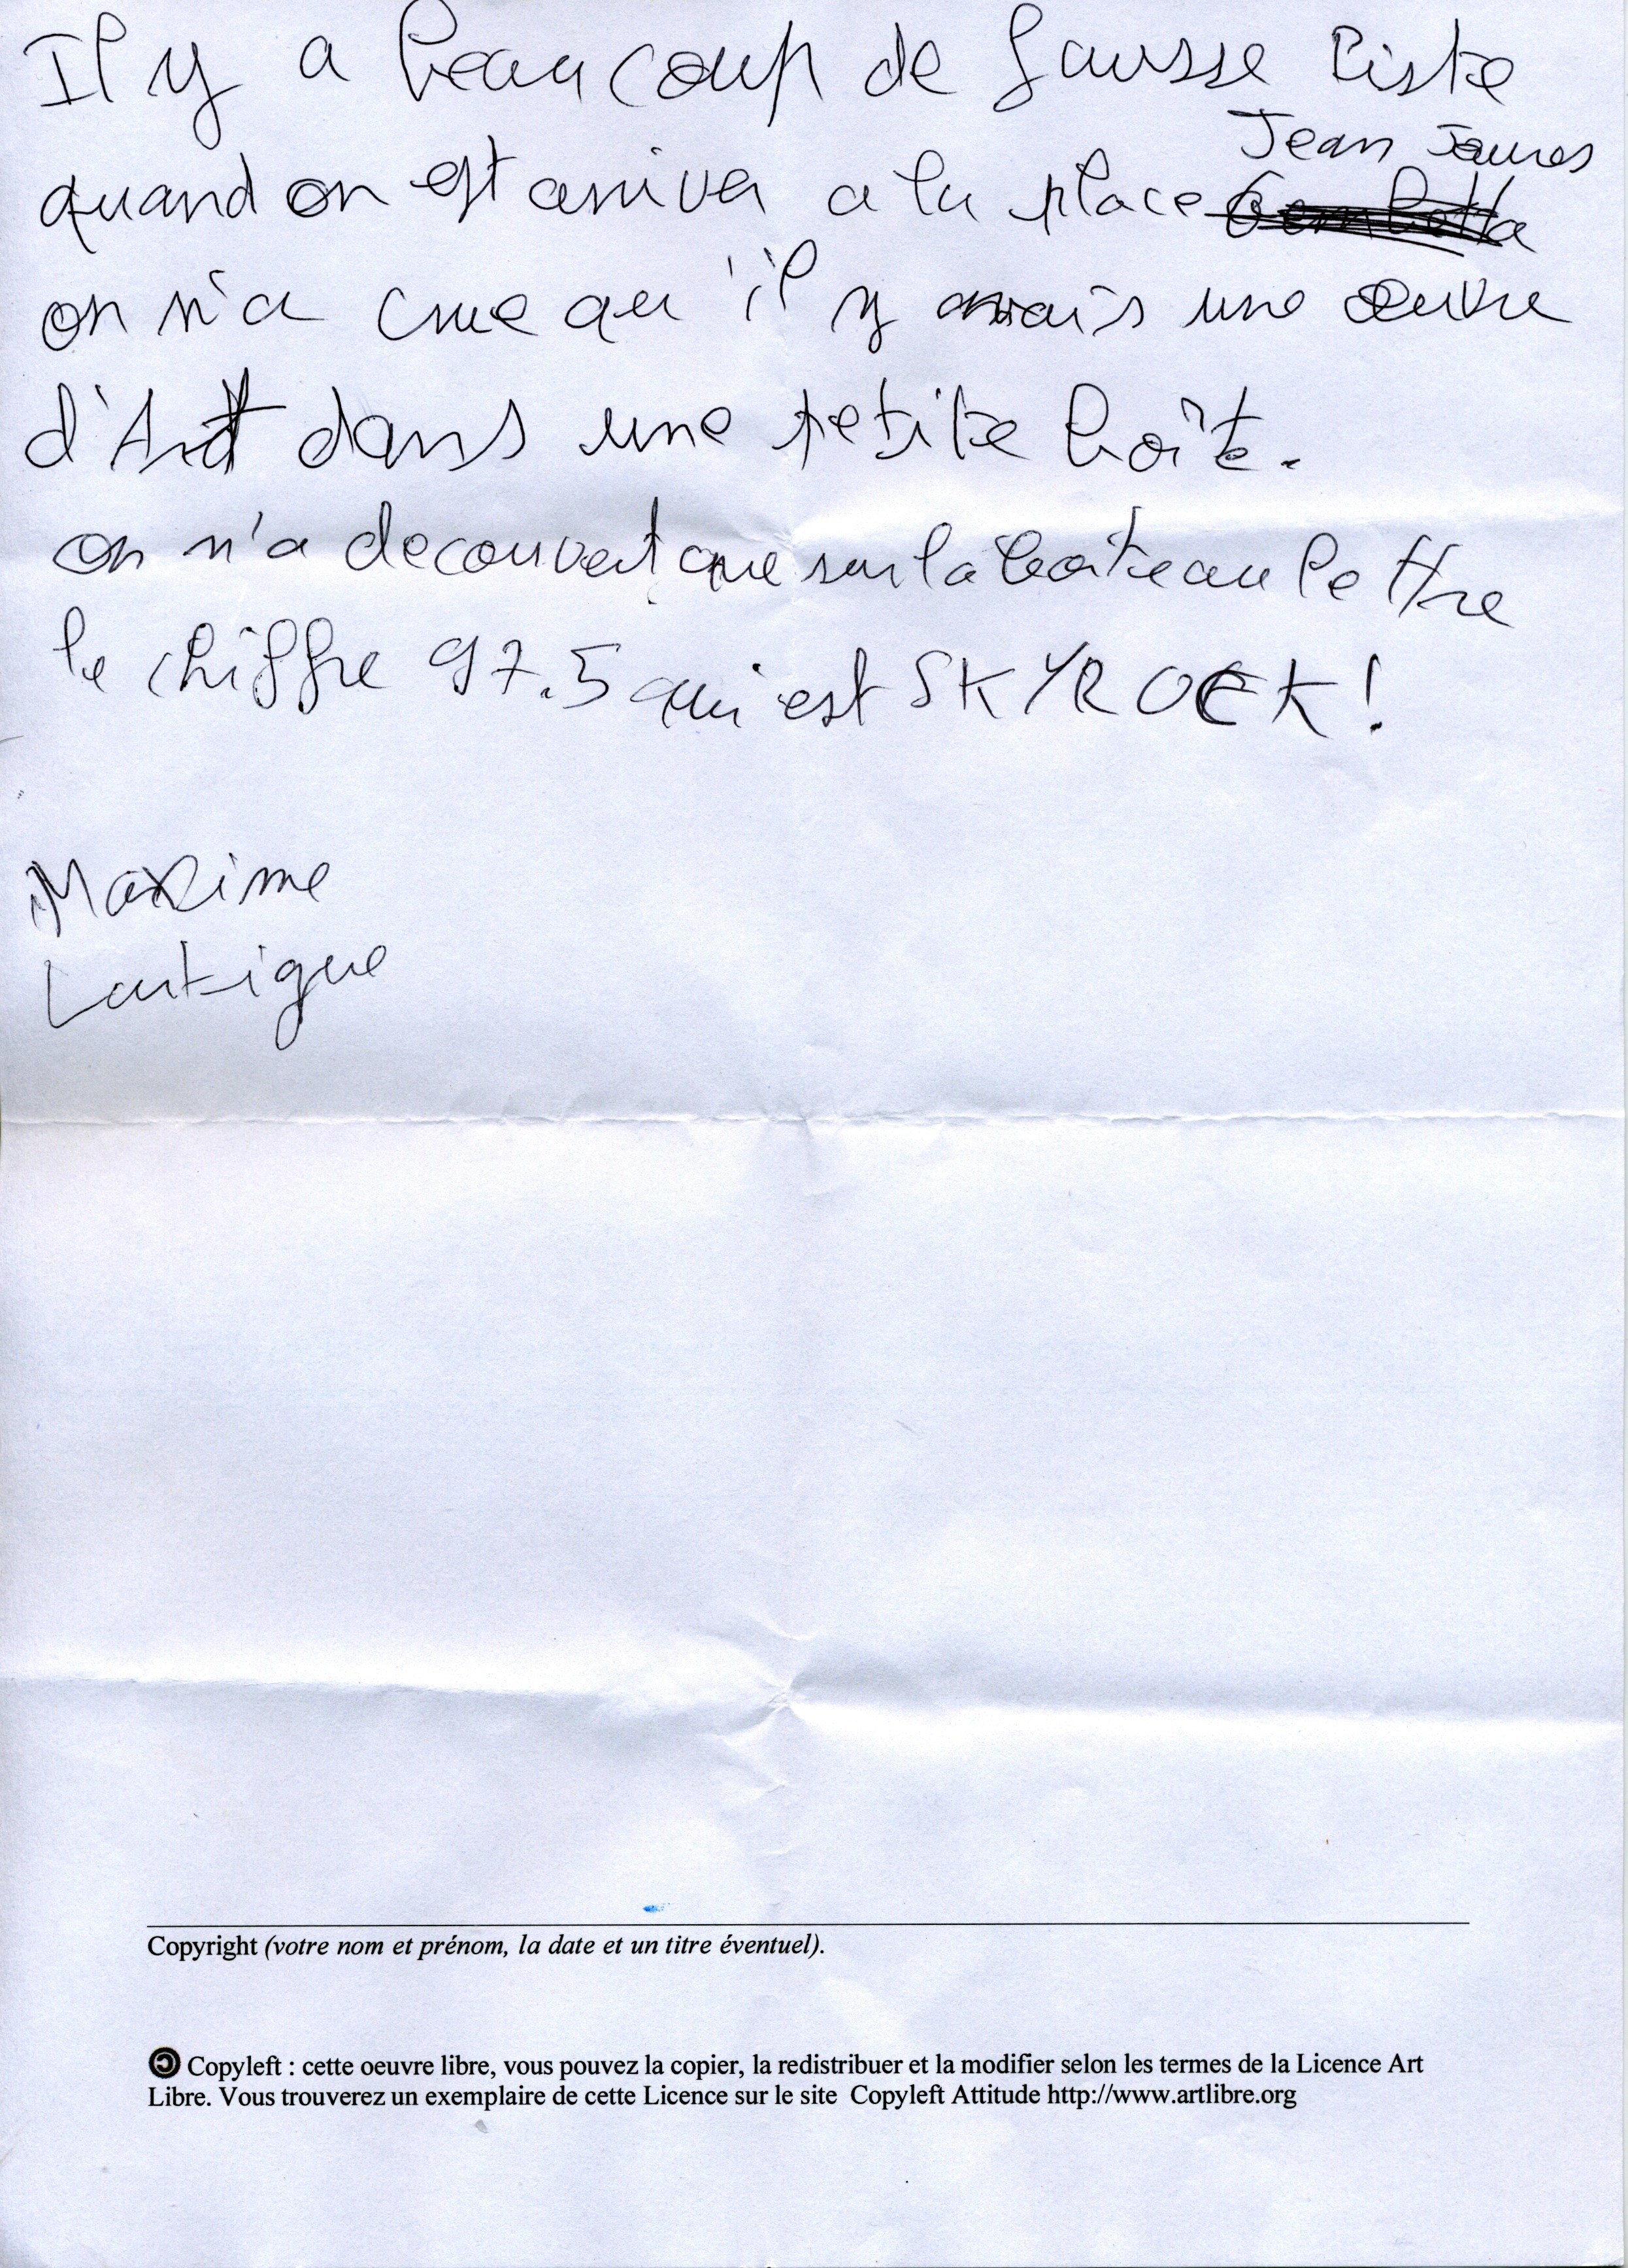 Il y a beaucoup de fausse Piste
quand on est arriver a la place Jean Jaures
on n'a crue qu'il y avais une œuvre
d'Art dans une petite boîte.
on n'a decouvert que sur la boite au lettre
le chiffre 97.5 qui est SKYROCK!
Maxime
Lartigue
Copyright (votre nom et prénom, la date et un titre éventuel).
Copyleft : cette oeuvre libre, vous pouvez la copier, la redistribuer et la modifier selon les termes de la Licence Art
Libre. Vous trouverez un exemplaire de cette Licence sur le site Copyleft Attitude http://www.artlibre.org